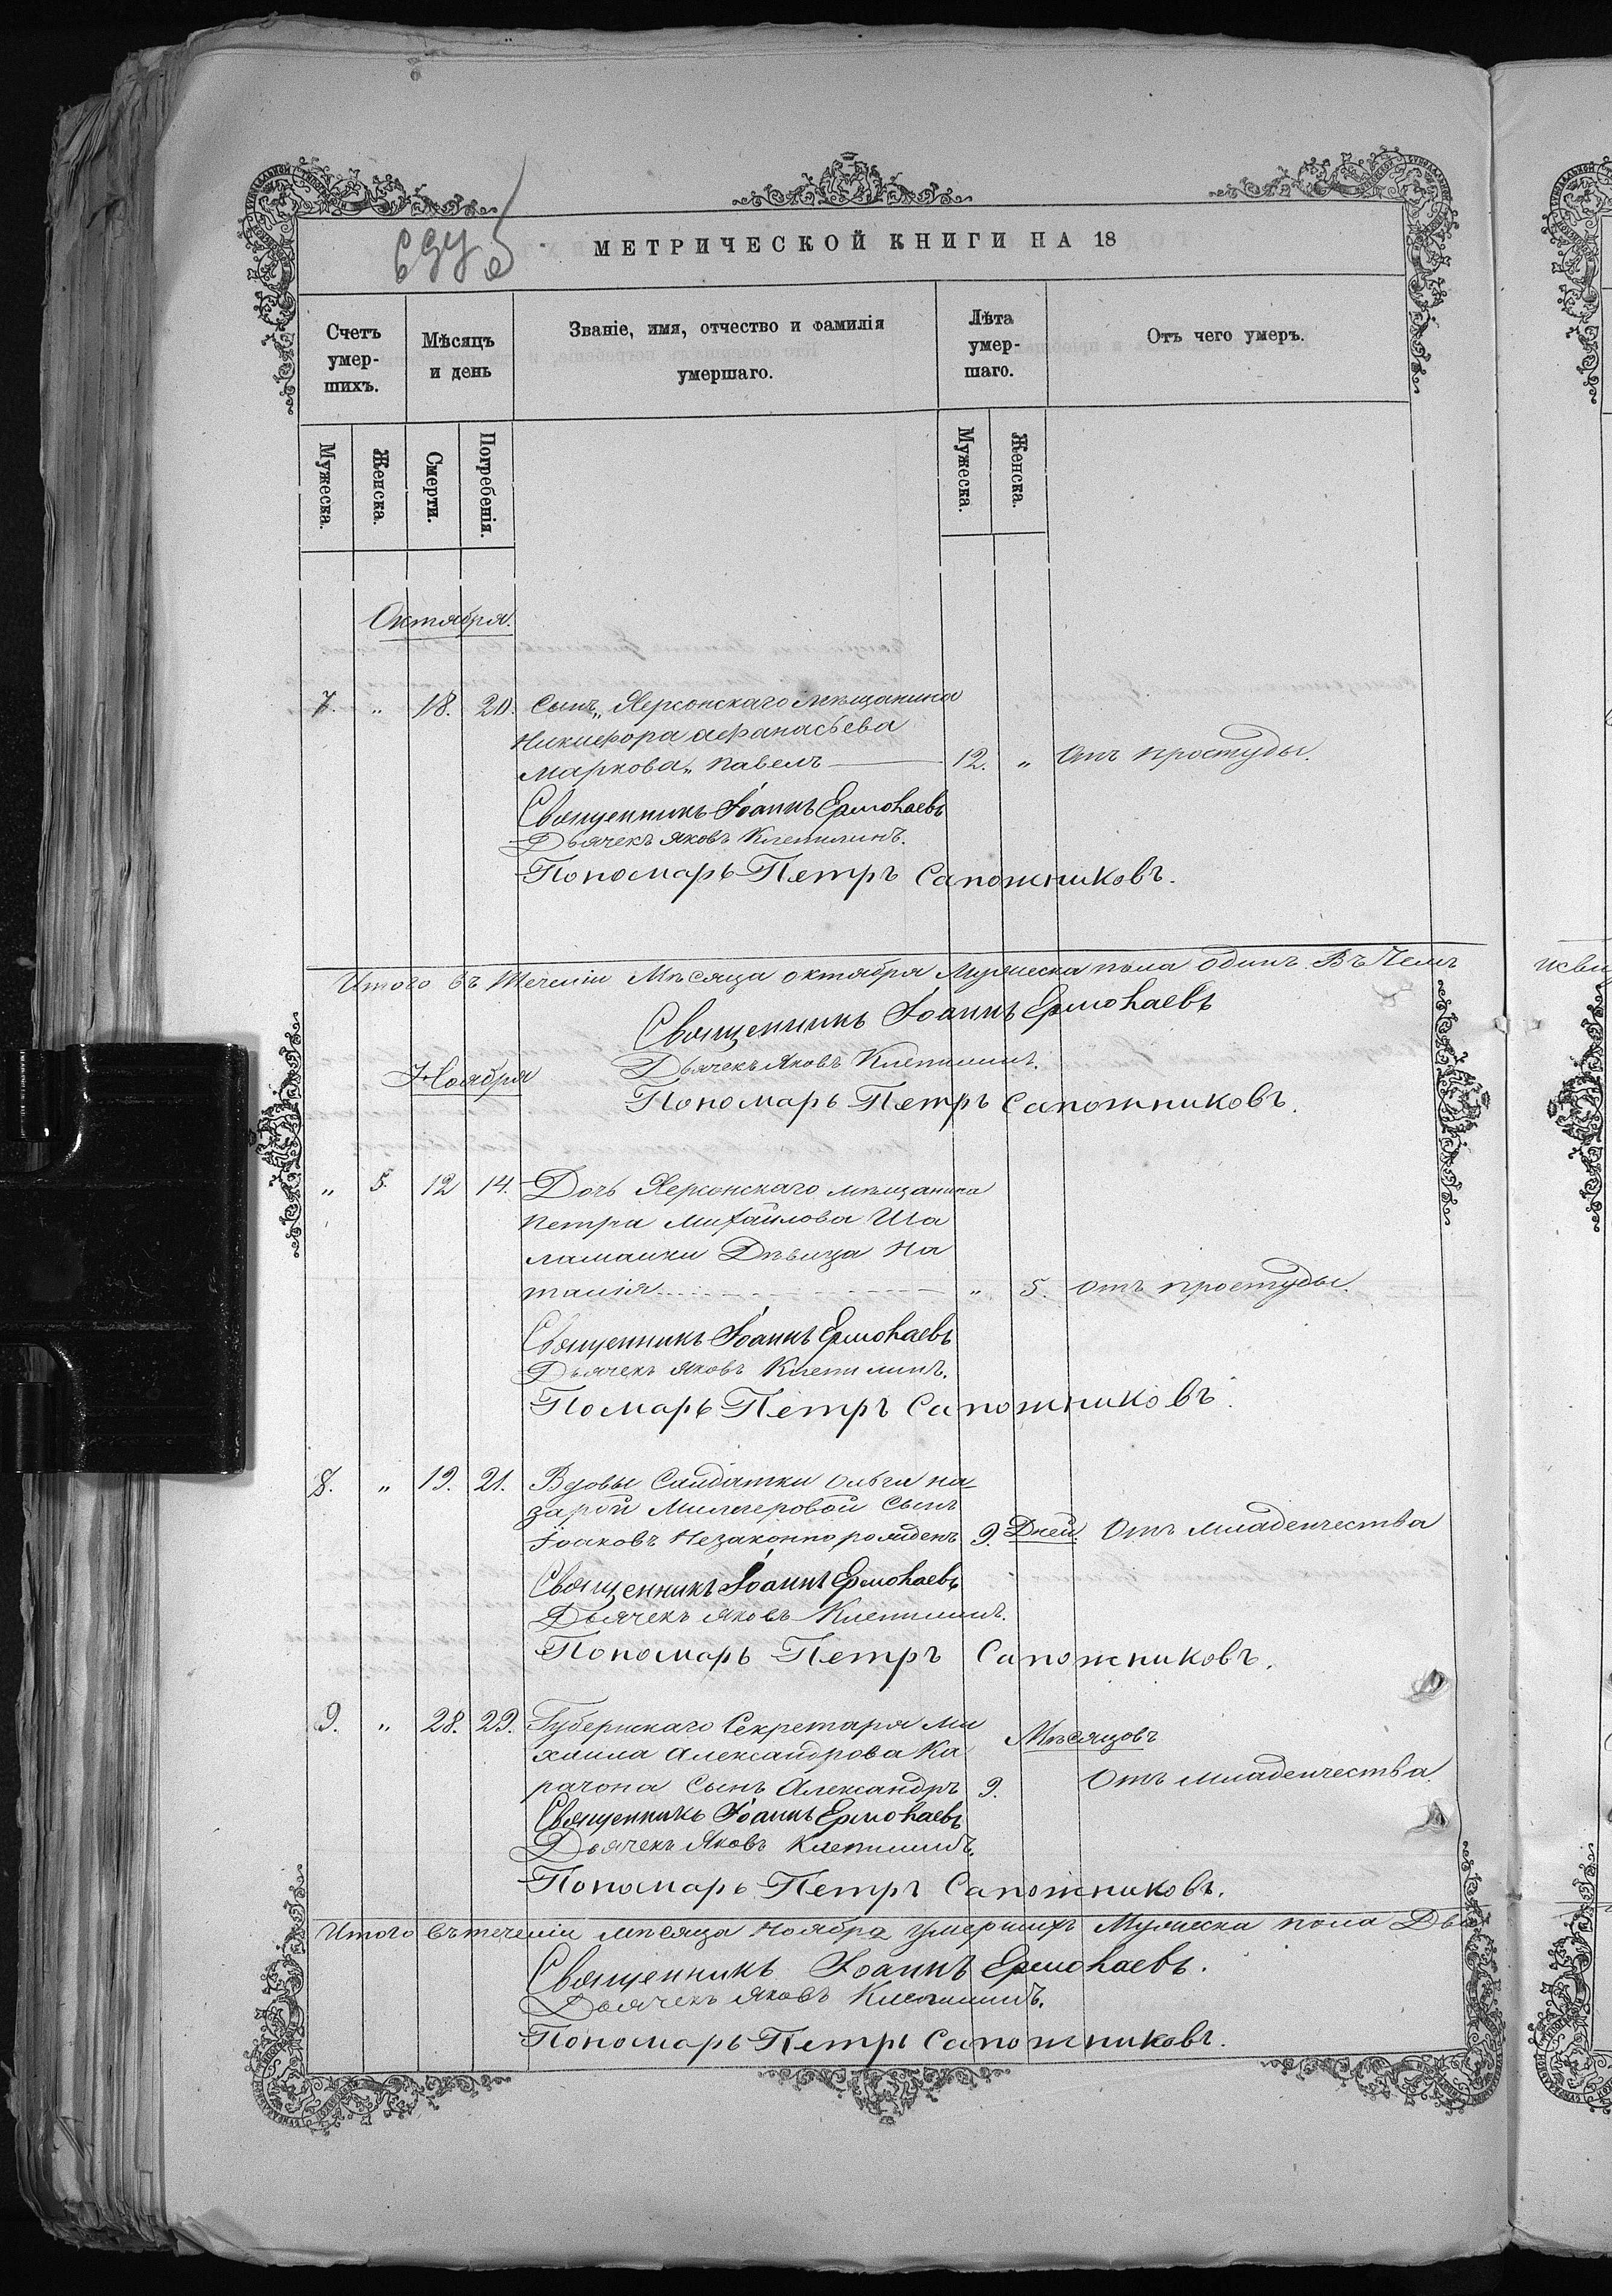 МЕТРИЧЕСКОЙ КНИГИ НА 18
Счетъ умер-шихъ.
Мѣсяцъ и день
Званіе, имя, отчество и фамилія
умершаго.
Лѣта умер-шаго.
Отъ чего умеръ.
Мужеска.
Женска.
Смерти.
Погребенія.
Мужеска.
Женска.
Октября.
7. „ 18. 20. Сынъ „ Херсонскаго мѣщанина
Никифора Афанасьева
Маркова „ Павелъ 12. „ Отъ простуды.
Священникъ Іоаннъ Ермолаевъ
Дьячекъ Яковъ
Пономарь Петръ Сапожниковъ.
Итого въ теченіи Мѣсяца октября Мужеска пола одинъ. Въ чемъ
Священникъ Іоаннъ Ермолаевъ
Дьячекъ Яковъ
Ноября
Пономарь Петръ Сапожниковъ.
„ 5. 12 14. Дочь Херсонскаго мѣщанина
Петра Михайлова Ша
ламайки Дѣвица На
талія „ 5. отъ простуды.
Священникъ Іоаннъ Ермолаевъ
Дьячекъ Яковъ
Помарь Петръ Сапожниковъ.
8. „ 19. 21. Вдовы Солдатки Ольги На
Сынъ
Незаконно рожденъ 9. Дней. Отъ младенчества
Священникъ Іоаннъ Ермолаевъ
Дьячекъ Яковъ
Пономарь Петръ Сапожниковъ.
9. „ 28. 29. Губернскаго Секретаря Ми
хаила Александрова Ка Мѣсяцовъ
рачона Сынъ Александръ 9. Отъ младенчества
Священникъ Іоаннъ Ермолаевъ
Дьячекъ Яковъ
Пономарь Петръ Сапожниковъ.
Итого въ теченіи мѣсяца Ноября умершихъ Мужеска пола Два
Священникъ Іоаннъ Ермолаевъ.
Дьячекъ Яковъ
Пономарь Петръ Сапожниковъ.